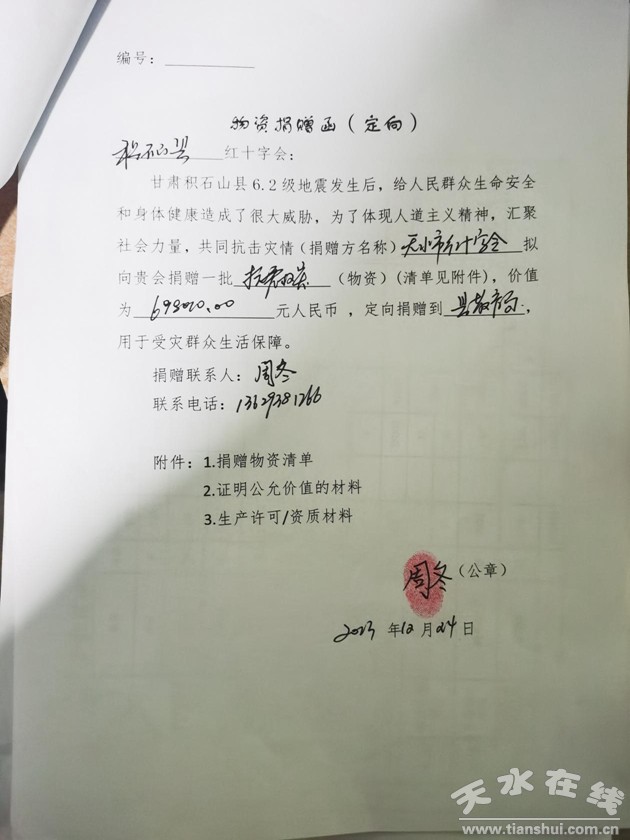 编号：
物资捐赠函（定向）
积石山县红十字会：
甘肃积石山县6.2级地震发生后，给人民群众生命安全
和身体健康造成了很大威胁，为了体现人道主义精神，汇聚
社会力量，共同抗击灾情（捐赠方名称）天水市红十字会拟
向贵会捐赠一批（物资）(清单见附件)，价值
为元人民币，定向捐赠到县教育局，
用于受灾群众生活保障。
捐赠联系人：周冬
联系电话：13629381266
附件：1.捐赠物资清单
2.证明公允价值的材料
3.生产许可/资质材料
周冬（公章）
2023年12月24日
天水在线
www.tianshui.com.cn